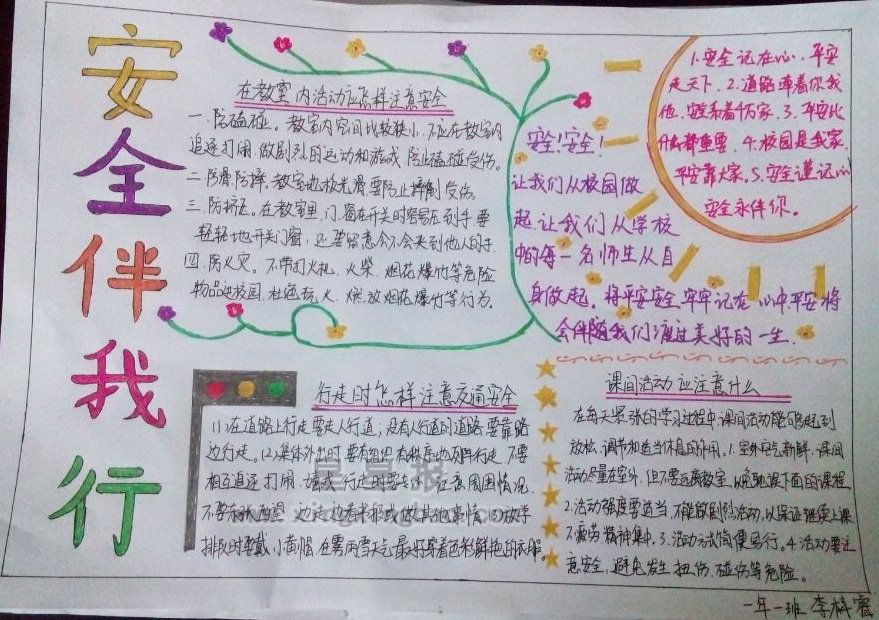 安全伴我行
在教室内活动应怎样注意安全
一.防磕碰。教室内空间比较狭小,不应在教室内
追逐打闹,做剧烈的运动和游戏,防止磕碰受伤。
二.防滑、防摔,教室地板光滑要防止摔倒受伤。
三.防挤压。在教室里,门、窗在开关时容易压到手,要
轻轻地开关门窗,还要留意会不会夹到他人的手。
四.防火灾。不带打火机、火柴、烟花爆竹等危险
物品进校园,杜绝玩火、燃放烟花爆竹等行为。
安全!安全!
让我们从校园做
起,让我们从学校
中的每一名师生从自
身做起。将平安安全牢牢记在心中,平安将
会伴随我们渡过美好的一生.
1.安全记在心,平安
走天下.2.道路牵着你我
他,安全系着千万家.3.平安比
什么都重要.4.校园是我家,
平安靠大家。5.安全谨记心
安全永伴你。
行走时怎样注意交通安全
(1)在道路上行走,要走人行道;没有人行道的道路,要靠路
边行走。(2)集体外出时,要有组织有秩序地列队行走,不要
相互追逐、打闹、嬉戏;行走时要专心,注意周围情况,
不要东张西望、边走边看书报或做其他事情.(3)放学
排队时要戴小黄帽,在雾、雨、雪天气,最好穿着色彩鲜艳的衣服。
课间活动应注意什么
在每天紧张的学习过程中,课间活动能够起到
放松、调节和适当休息的作用。1.室外空气新鲜,课间
活动尽量在室外,但不要远离教室,以免耽误下面的课程.
2.活动强度要适当,不能做剧烈活动,以保证继续上课
不疲劳,精神集中.3.活动方式简便易行。4.活动要注
意安全,避免发生扭伤、碰伤等危险。
一年一班 李梓睿